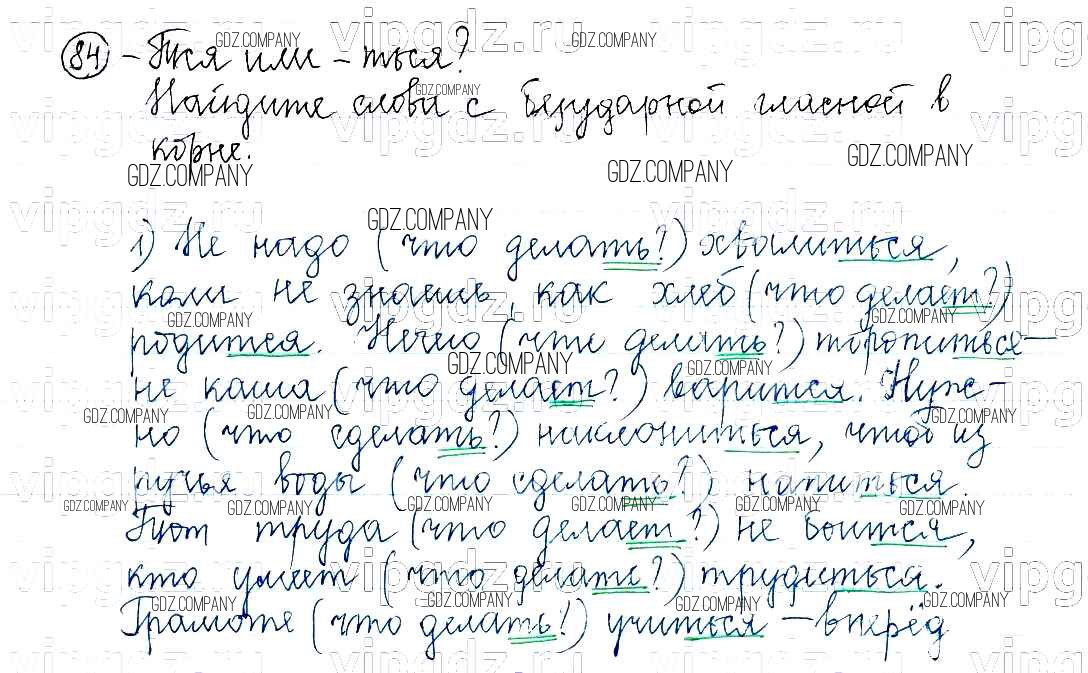 84 -Тся или -ться?
Найдите слова с безударной гласной в
корне.
1) Не надо (что делать?) хвалиться,
коли не знаешь, как хлеб (что делает?)
родится. Нечего (что делать?) торопиться –
не каша (что делает?) варится. Нуж-
но (что сделать?) наклониться, чтоб из
ручья воды (что сделать?) напиться.
Тот труда (что делает?) не боится,
кто умеет (что делать?) трудиться.
Грамоте (что делать?) учиться – вперёд